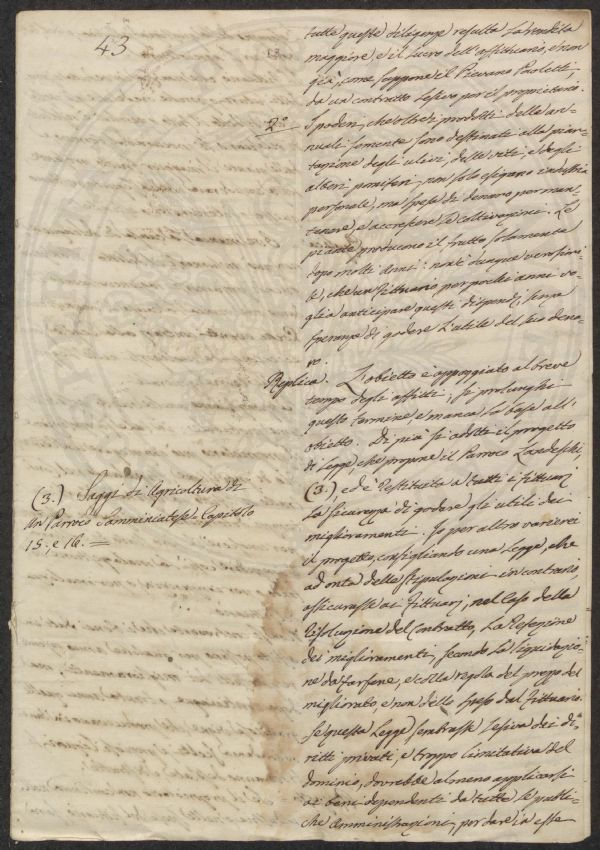 43
tutte queste diligenze resulta la rendita
maggiore, e il lucro dell'affittuario, e non
già, come suppone il Pievano Paoletti,
da un contratto lesivo per il proprietario.
2°
I poderi, che oltre i prodotti delle an-
nuali semente sono destinati alla pian-
tazione degli ulivi, delle viti, e degli
alberi pomiferi, non solo esigono industria
personale, ma spese di denaro per man-
tenere, e accrescere le coltivazioni. Le
piante producono il frutto solamente
dopo molti anni: non è dunque verosimi-
le, che un fittuario per pochi anni vo-
glia anticipare questi dispendj, senza
speranza di godere l'utile del suo dena-
ro.
Replica. L'obietto è appoggiato al breve
tempo degli affitti, si prolunghi
questo termine, e manca la base all'
obietto. Di più si adotti il progetto
di Legge, che propone il Parroco Landeschi,
(3.) ed è restituita a tutti i fittuarj
la sicurezza di godere gli utili dei
miglioramenti. Io per altro varierei
il progetto, consigliando una Legge, che
ad onta delle stipulazioni in contrario,
assicurasse ai fittuarj, nel Caso della
risoluzione del Contratto, la Refezione
dei miglioramenti, secondo la liquidazio-
ne da farsene, e colla regola del prezzo del
migliorato, e non dello speso dal fittuario.
Se questa Legge sembrasse lesiva dei di-
ritti privati, e troppo limitativa del
dominio, dovrebbe almeno applicarsi
ai beni dipendenti da tutte le pubbli-
che Amministrazioni, per dare in esse
(3.) Saggi di Agricoltura di
un Parroco Samminiatese Capitolo
15. e 16.=